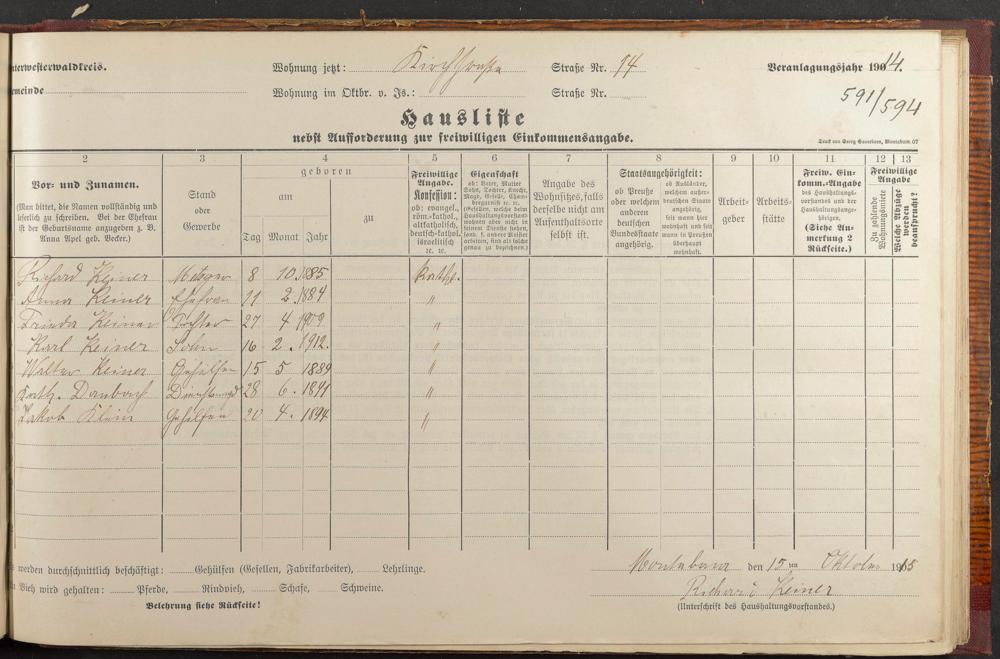 nterwesterwaldkreis. Wohnung jetzt: Kirchstraße Straße Nr. 14 Veranlagungsjahr 1914.
emeinde Wohnung im Oktbr. v. Js.: Straße Nr. 591/594
Hausliste
nebst Aufforderung zur freiwilligen Einkommensangabe.
Druck von Georg Sauerborn, Montabaur 07
2 3 4 5 6 7 8 9 10 11 12 13
Vor- und Zunamen.
(Man bittet, die Namen vollständig und
leserlich zu schreiben. Bei der Ehefrau
ist der Geburtsname anzugeben z. B.
Anna Apel geb. Becker.)
Stand
oder
Gewerbe
geboren
am
zu
Tag Monat Jahr
Freiwillige
Angabe.
Konfession:
ob: evangel.,
röm.-kathol.,
altkatholisch,
deutsch-kathol.
israelitisch
ec. ec.
Eigenschaft
ob: Vater, Mutter
Sohn, Tochter, Knecht,
Magd, Gesell, Cham-
bregarnist ec. ec.
(Gesellen, welche beim
Haushaltungsvorstand
wohnen aber nicht in
seinem Dienste stehen,
sond. f. andere Meister
arbeiten, sind als solche
genau zu bezeichnen.)
Angabe des
Wohnsitzes, falls
derselbe nicht am
Aufenthaltsorte
selbst ist.
Staatsangehörigkeit:
ob Preuße
oder welchem
anderen
deutschen
Bundesstaate
angehörig.
ob Ausländer,
welchem außer-
deutschen Staate
angehörig,
seit wann hier
wohnhaft und seit
wann in Preußen
überhaupt
wohnhaft.
Arbeit-
geber
Arbeits-
stätte
Freiw. Ein-
komm.-Angabe
des Haushaltungs-
vorstandes und der
Haushaltungsange-
hörigen.
(Siehe An-
merkung 2
Rückseite.)
Freiwillige
Angabe
Zu zahlende
Wohnungsmiete
Welche Abzüge
werden
beansprucht?
Richard Keiner Metzger 8 10. 1885 kathl.
Anna Keiner Ehefrau 11 2. 1884 "
Frieda Keiner Tochter 27 4 1909 "
Karl Keiner Sohn 16 2. 1912. "
Walter Keiner Gehilfen 15 5 1889 "
Kath. Daubach Dienstmagd 28 6. 1891 "
Jakob Klein Gehilfen 20 4. 1894 "
s werden durchschnittlich beschäftigt: Gehülfen (Gesellen, Fabrikarbeiter), Lehrlinge.
n Vieh wird gehalten: Pferde, Rindvieh, Schafe, Schweine.
Belehrung siehe Rückseite!
Montabaur den 15ten Oktober 1915
Richard Keiner
(Unterschrift des Haushaltungsvorstandes.)